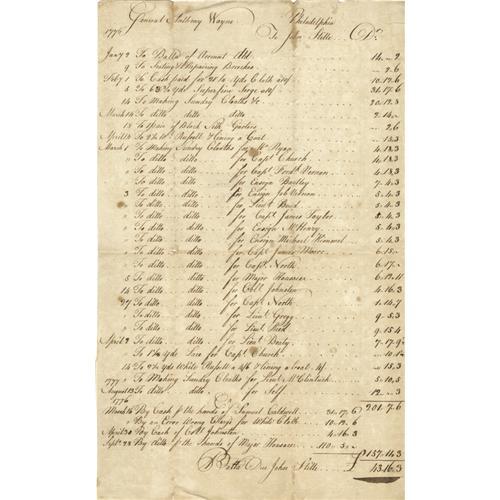 General Anthony Wayne Philadelphia
1776 To John Stille Dr
Jany 2 To Ballce of Account Ald 14 . - . 2
9 To Seating & Repairing Breeches - . 2 . 6
Feby 1 To Cash paid for yds Cloth 10 . 12 . 6
5 To yds Superfine Serge 31 . 17 . 6
14 To Making Sunday Cloaths &c 20 . 12 . 3
March 14 To ditto ditto ditto 2 . 14 . -
18 To 1 pair of Black Silk Garters - . 2 . 6
April 13 To Yds Russell & lining a Coat - . 13 . 3
March 1 To Making Sundry Cloaths for Mr Ryan 4 . 18 . 3
" To ditto ditto for Capt Church 4 . 18 . 3
" To ditto ditto for Capt Vernon 4 . 18 . 3
" To ditto ditto for Ensign Bartley 7 . 4 . 3
3 To ditto ditto for Ensign Job Vernon 5 . 4 . 3
" To ditto ditto for Lieut 5 . 4 . 3
" To ditto ditto for Capt James Taylor 5 . 4 . 3
" To ditto ditto for Ensign McHenry 5 . 4 . 3
" To ditto ditto for Ensign Michael 5 . 4 . 3
" To ditto ditto for Capt James Moore 6 . 15 . -
" To ditto ditto for Capt North 6 . 17 . -
5 To ditto ditto for Major Hausace 6 . 12 . 11
14 To ditto ditto for Coll Johnston 4 . 16 . 3
27 To ditto ditto for Capt North 1 . 14 . 7
" To ditto ditto for Lieut Gregg 9 . 5 . 3
" To ditto ditto for Lieut 9 . 15 . 4
April 2 To ditto ditto for Lieut 7 . 17 . 9
To yds Lace for Capt Church
14 To yds White Russell & lining a Coat - . 15 . 3
1777 To Making Sundry Cloaths for Lieut McClintock 5 . 10 . 5
August 13 To ditto ditto for Self 12 . - . 3
1776 Cr 201 . 7 . 6
March 16 By Cash the hands of Samuel Caldwell 31 . 17 . 6
" By an Error Wrong Charge for White Cloth 10 . 12 . 6
April 20 By Cash of Coll Johnston 4 . 16 . 3
Sept 28 By ditto the hands of Major Hausace 110 . 5 . -
£ 157 . 14 . 3
Ballce Due John Stille £ 43 . 16 . 3